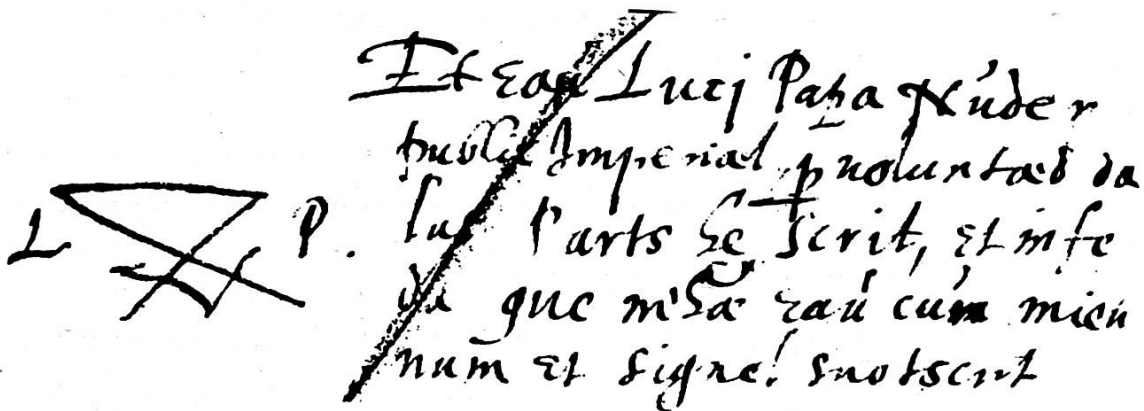 Et eau Luci Papa Nuder
public Imperial p uoluntæd da
L P. las Parts hę scrit, Et in fe
da que m'hæ eaú cúm mieu
num Et signel suotscrit